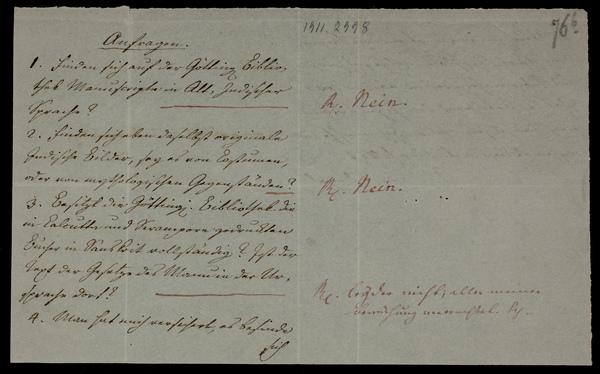 1911. 2998
76b
Anfragen.
1. Finden sich auf der Götting. Biblio,
thek Manuscripte in Alt, Indischer
Sprache?
R. Nein.
2. Finden sich eben daselbst originale
Indische Bilder, sey es von Costumen,
oder von mythologischen Gegenständen?
R. Nein.
3. Besitzt die Götting. Bibliothek die
in Calcutta und Serampore gedruckten
Bücher in Sanskrit vollständig? Ist der
Text der Gesetze des Manu in der Ur,
sprache dort?
R. leyder nicht, aller meiner
4. Man hat mich versichert, es befinde
sich